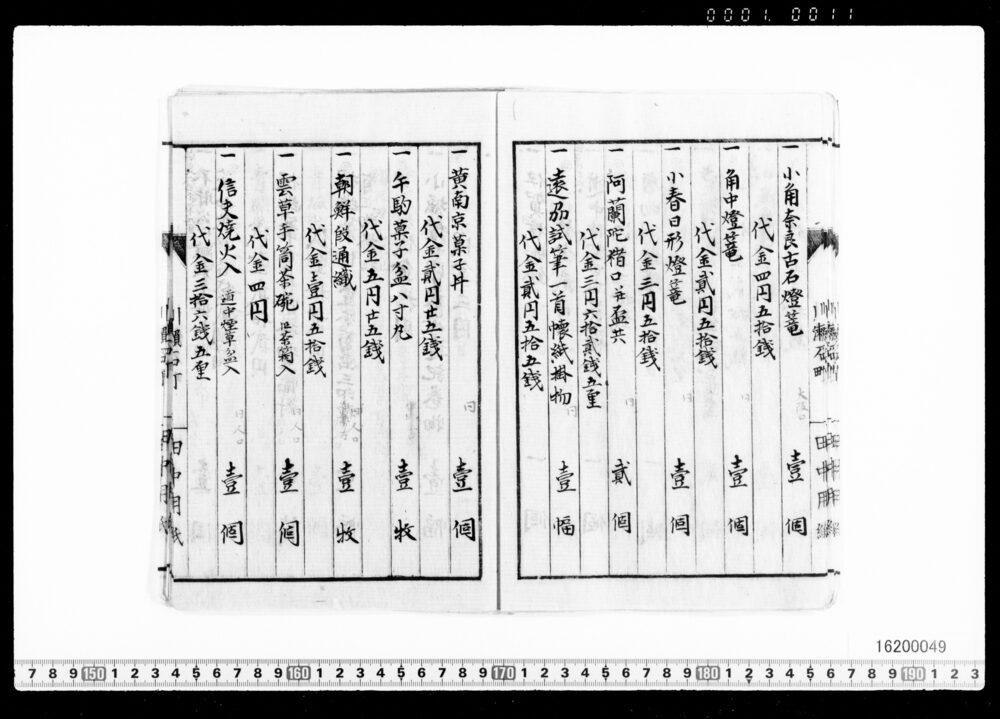 0001. 0011
一 小角奈良古石燈篭 壹個
代金四円五拾銭
一 角中燈篭 壹個
代金貳円五拾銭
一 小春日形燈篭 壹個
代金三円五拾銭
一 阿蘭陀 口 盃共 貳個
代金三円六拾貳銭五厘
一 遠 試筆一首懐紙掛物 壹幅
代金貳円五拾五銭
一 黄南京菓子丼 壹個
代金貳円廿五銭
一 午 菓子盆 八寸丸 壹枚
代金五円廿五銭
一 朝鮮段通 壹枚
代金壹円五拾銭
一 雲草手筒茶碗 箱入 壹個
代金四円
一 信夫焼火入 道中煙草盆入 壹個
代金三拾六銭五厘
16200049
7 8 9 150 1 2 3 4 5 6 7 8 9 160 1 2 3 4 5 6 7 8 9 170 1 2 3 4 5 6 7 8 9 180 1 2 3 4 5 6 7 8 9 190 1 2 3